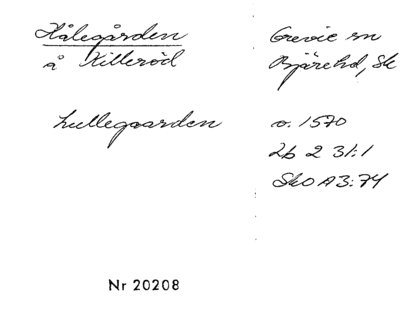 Hålegården
å Killeröd
Grevie sn
Bjäre hd, Sk
hullegaarden
o. 1570
2b 2 31:1
SkO A3:74
Nr 20208